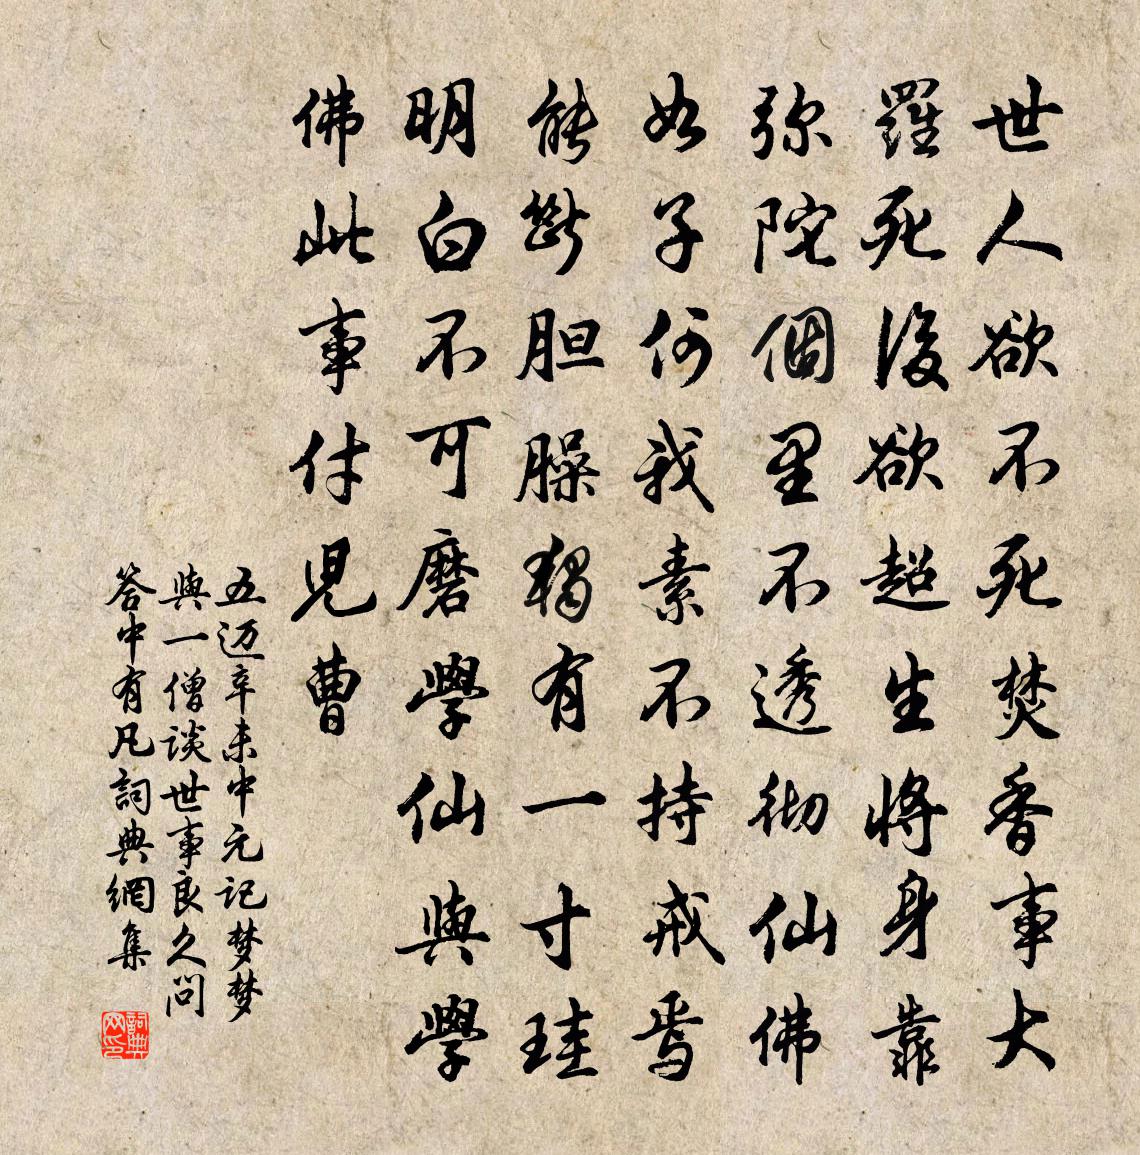 世人欲不死焚香事大
羅死後欲超生將身靠
弥陀個里不透彻仙佛
如子何我素不持戒焉
能斷胆臊獨有一寸珪
明白不可磨學仙與學
佛此事付兒曹
五迈辛未中元记梦梦
與一僧谈世事良久问
答中有凡詞典網集
詞典
网印